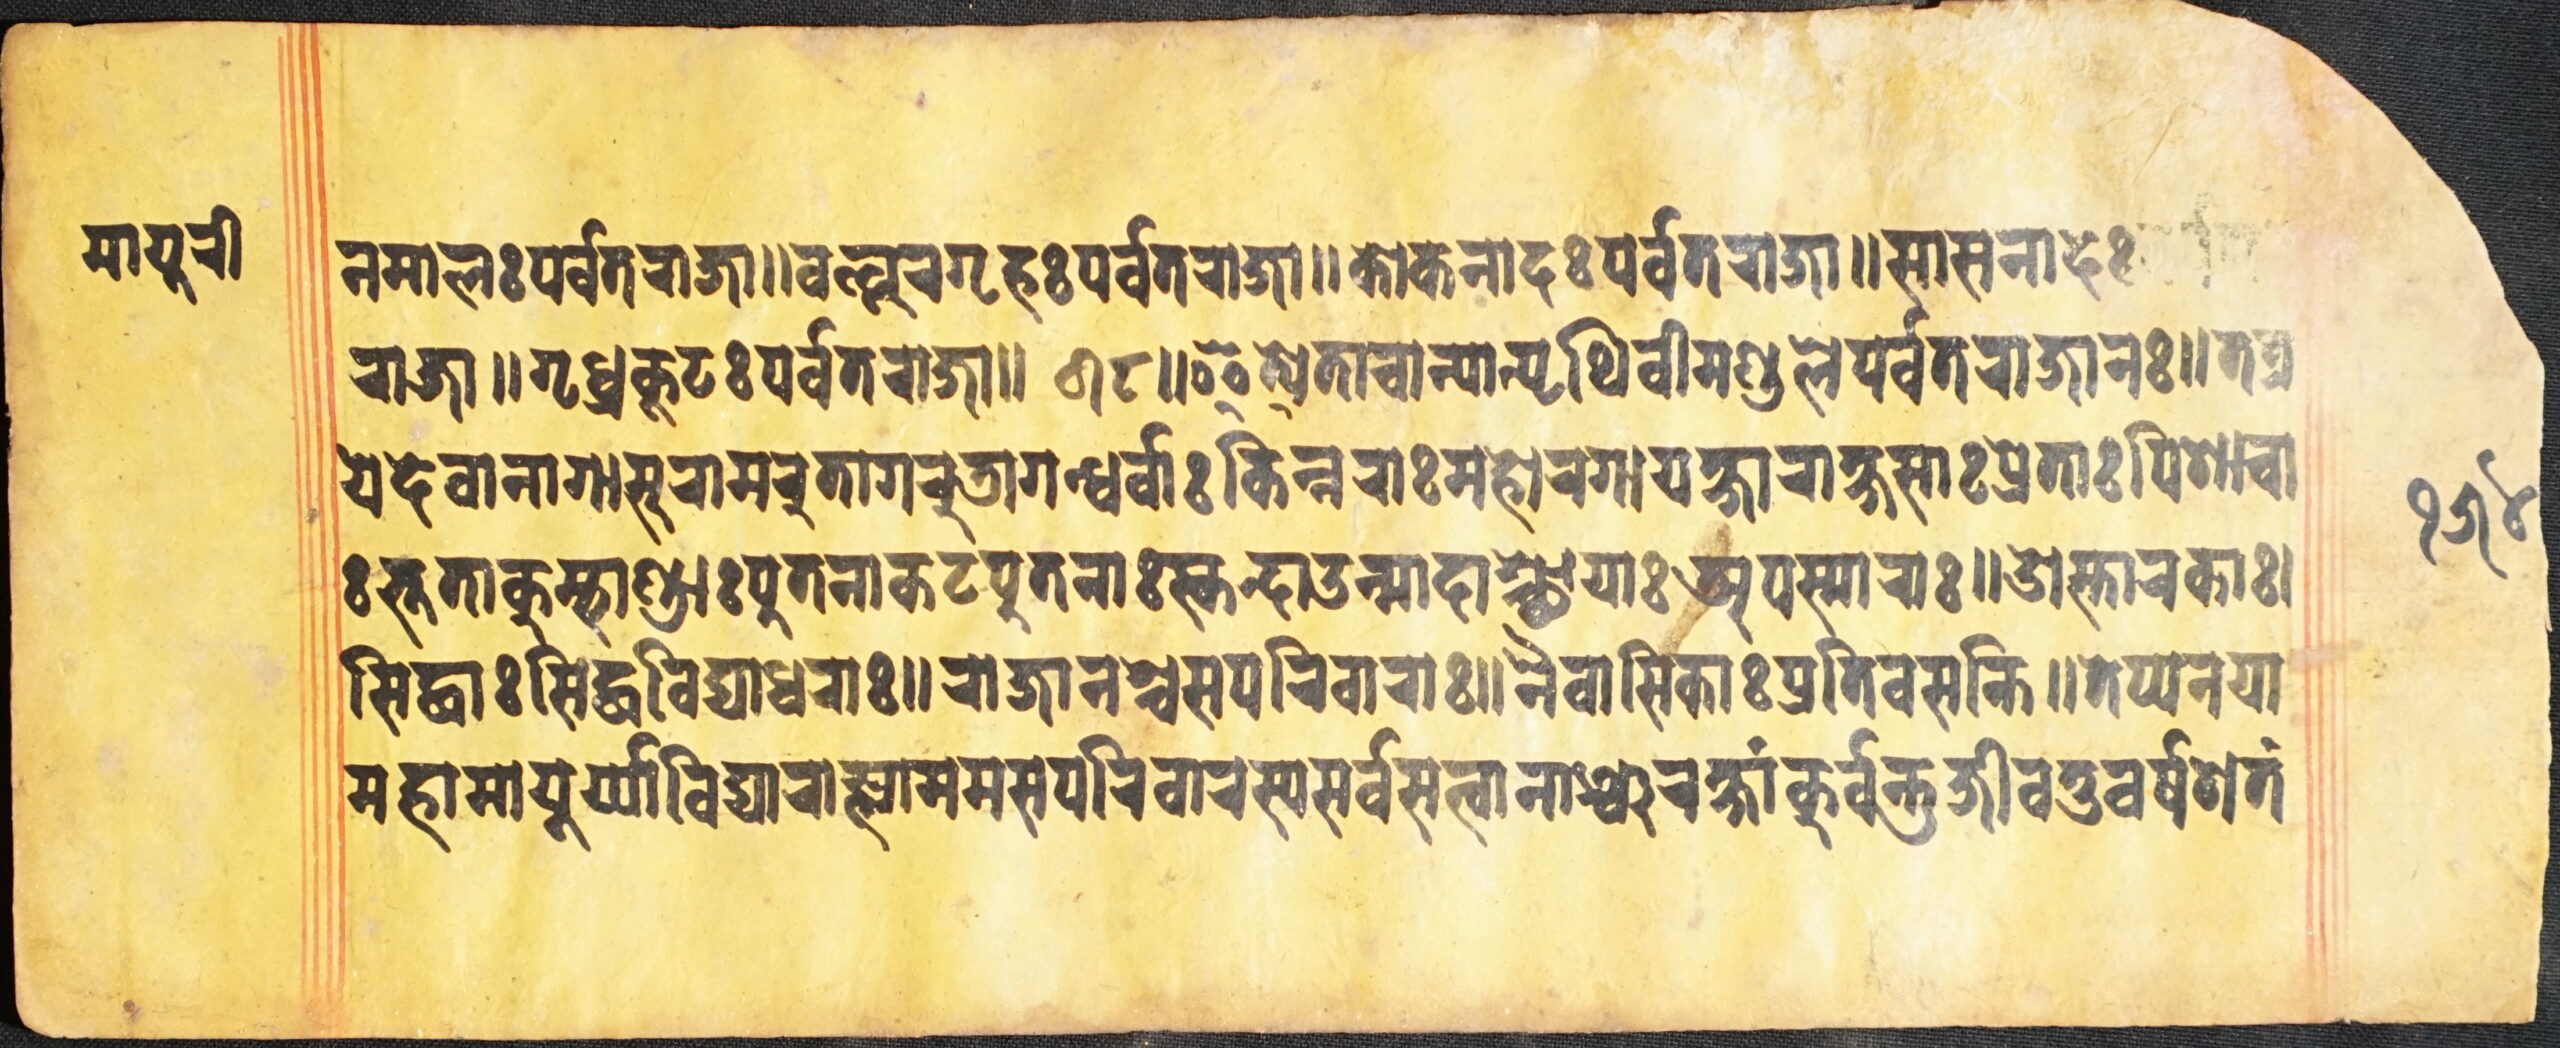 मायुरी
नमालः पर्वतराजा॥ वल्लूरगृहः पर्वतराजा॥ कोकनादः पर्वतराजा॥ सासनादेः
राजा॥ गृध्रकूटः पर्वतराजा॥ ७८॥ इत्येतावान्यान्पृथिवीमण्डले पर्वतराजानः॥ तत्र
ये देवा नागासुरा मरुता गरुडा गन्धर्वाः किन्नराः महोरगा यक्षा राक्षसाः प्रेताः पिशाचा
ः भूता कुम्भाण्डाः पुतना कटपुतनाः स्कन्दा उन्मादाश्छायाः अपस्माराः॥ ओस्तारकाः।
सिद्धाः सिद्धविद्याधराः॥ राजानश्च सपरिवाराः॥ नैवासिकाः प्रतिवसन्ति॥ तेप्यनया
महामायूर्य्या विद्याराज्ञा मम सपरिवारस्य सर्वसत्वानाञ्च रक्षां कुर्वन्तु जीवतु वर्षशतं
१७४